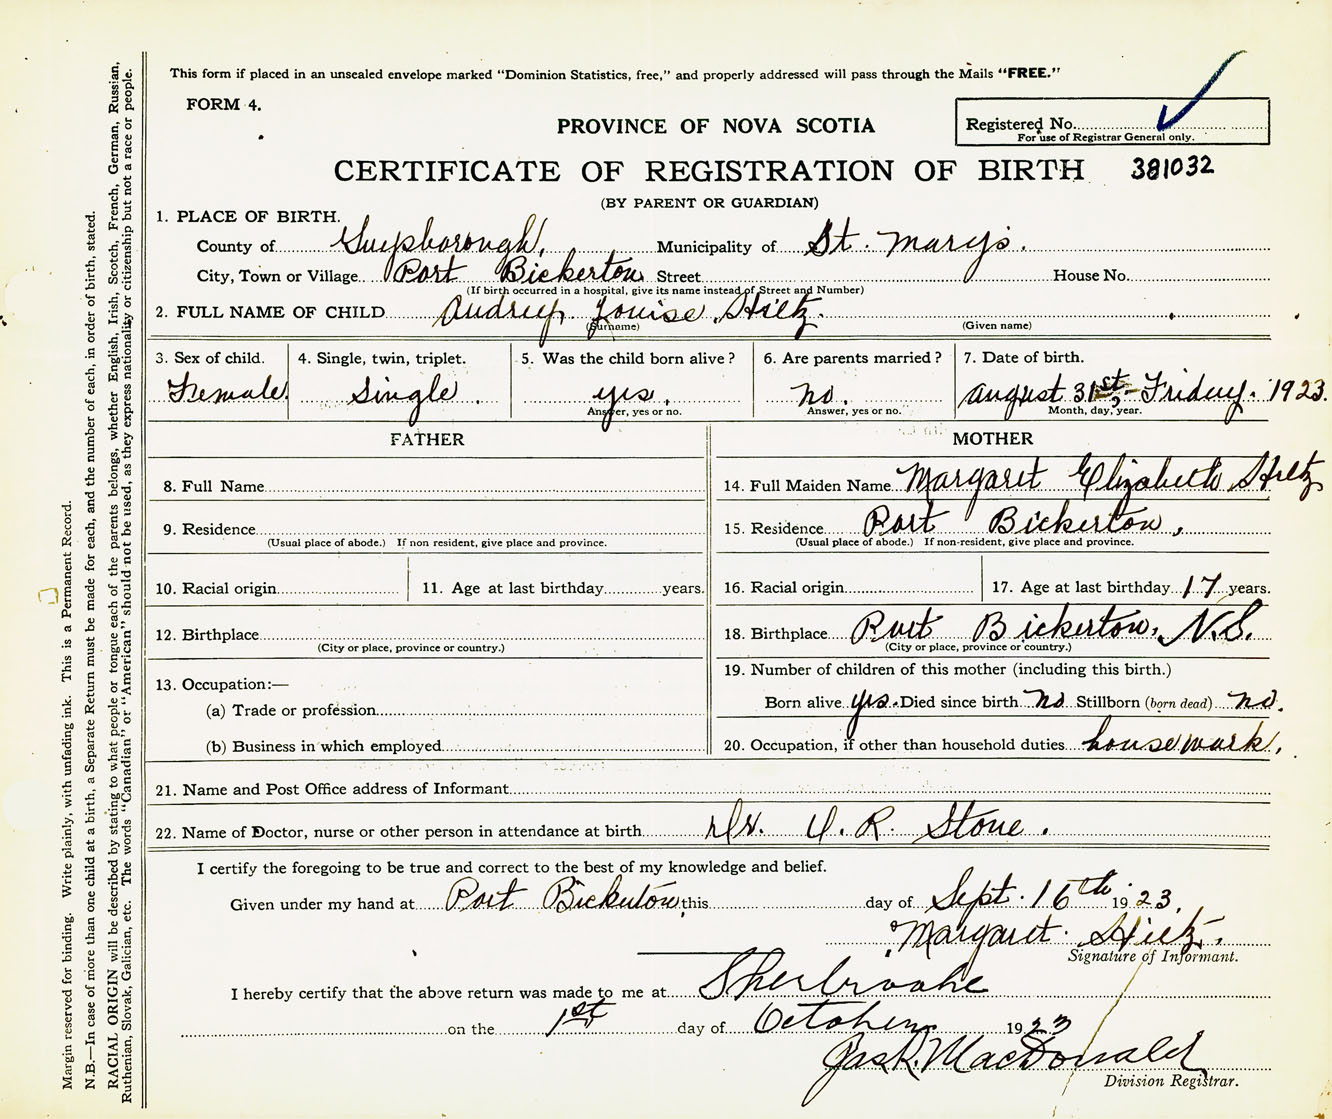 This form if placed in an unsealed envelope marked "Dominion Statistics, free," and properly addressed will pass through the Mails "FREE."
FORM 4.
PROVINCE OF NOVA SCOTIA
Registered No.
For use of Registrar General only.
CERTIFICATE OF REGISTRATION OF BIRTH 381032
(BY PARENT OR GUARDIAN)
1. PLACE OF BIRTH.
County of Guysborough, Municipality of St. Mary's.
City, Town or Village Port Bickerton Street House No.
(If birth occurred in a hospital, give its name instead of Street and Number)
2. FULL NAME OF CHILD Audrey Louise Hiltz.
(Surname) (Given name)
3. Sex of child. 4. Single, twin, triplet. 5. Was the child born alive? 6. Are parents married? 7. Date of birth.
Female Single yes, no, August 31st, Friday. 1923.
Answer, yes or no. Answer, yes or no. Month, day, year.
FATHER MOTHER
8. Full Name 14. Full Maiden Name Margaret Elizabeth Hiltz
9. Residence 15. Residence Port Bickerton,
(Usual place of abode.) If non resident, give place and province. (Usual place of abode.) If non-resident, give place and province.
10. Racial origin 11. Age at last birthday years. 16. Racial origin 17. Age at last birthday 17 years.
12. Birthplace 18. Birthplace Port Bickerton, N.S.
(City or place, province or country.) (City or place, province or country.)
19. Number of children of this mother (including this birth.)
13. Occupation:—
(a) Trade or profession Born alive yes. Died since birth no Stillborn (born dead) no.
(b) Business in which employed 20. Occupation, if other than household duties housework.
21. Name and Post Office address of Informant
22. Name of Doctor, nurse or other person in attendance at birth Dr. U. R. Stone.
I certify the foregoing to be true and correct to the best of my knowledge and belief.
Given under my hand at Port Bickerton, this day of Sept. 16th 1923.
Margaret Hiltz.
Signature of Informant.
I hereby certify that the above return was made to me at Sherbrooke
on the 1st day of October 1923
Jas R. MacDonald
Division Registrar.
Margin reserved for binding. Write plainly, with unfading ink. This is a Permanent Record.
N.B.—In case of more than one child at a birth, a Separate Return must be made for each, and the number of each, in order of birth, stated.
RACIAL ORIGIN will be described by stating to what people or tongue each of the parents belongs, whether English, Irish, Scotch, French, German, Russian,
Ruthenian, Slovak, Galician, etc. The words "Canadian" or "American" should not be used, as they express nationality or citizenship but not a race or people.